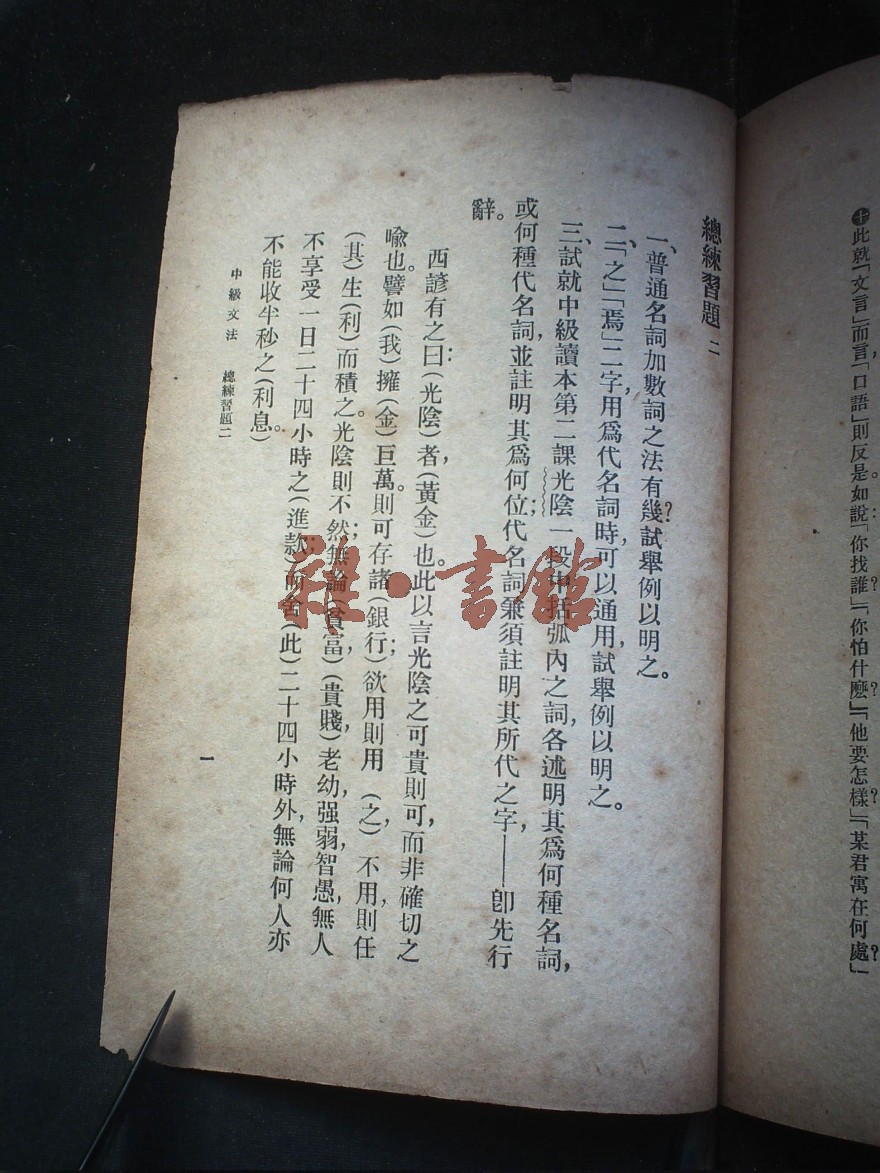 ㊉此就「文言」而言,「口語」則反是。如說:「你找誰?」「你怕什麽?」「他要怎樣?」「某君寓在何處?」
總練習題二
一、普通名詞加數詞之法有幾?試舉例以明之。
二、「之」「焉」二字,用爲代名詞時,可以通用,試舉例以明之。
三、試就中級讀本第二課光陰一段中括弧內之詞,各述明其爲何種名詞,
或何種代名詞,並註明其爲何位;代名詞兼須註明其所代之字,——卽先行
辭。
西諺有之曰:(光陰)者,(黃金)也。此以言光陰之可貴則可,而非確切之
喩也。譬如(我)擁(金)巨萬。則可存諸(銀行)欲用則用(之)不用,則任
(其)生(利)而積之。光陰則不然;無論(貧富)(貴賤)老幼,强弱,智愚,無人
不享受一日二十四小時之(進款;)而舍(此)二十四小時外,無論何人,亦
不能收半秒之(利息。)
中級文法 總練習題二
一
雜·書館